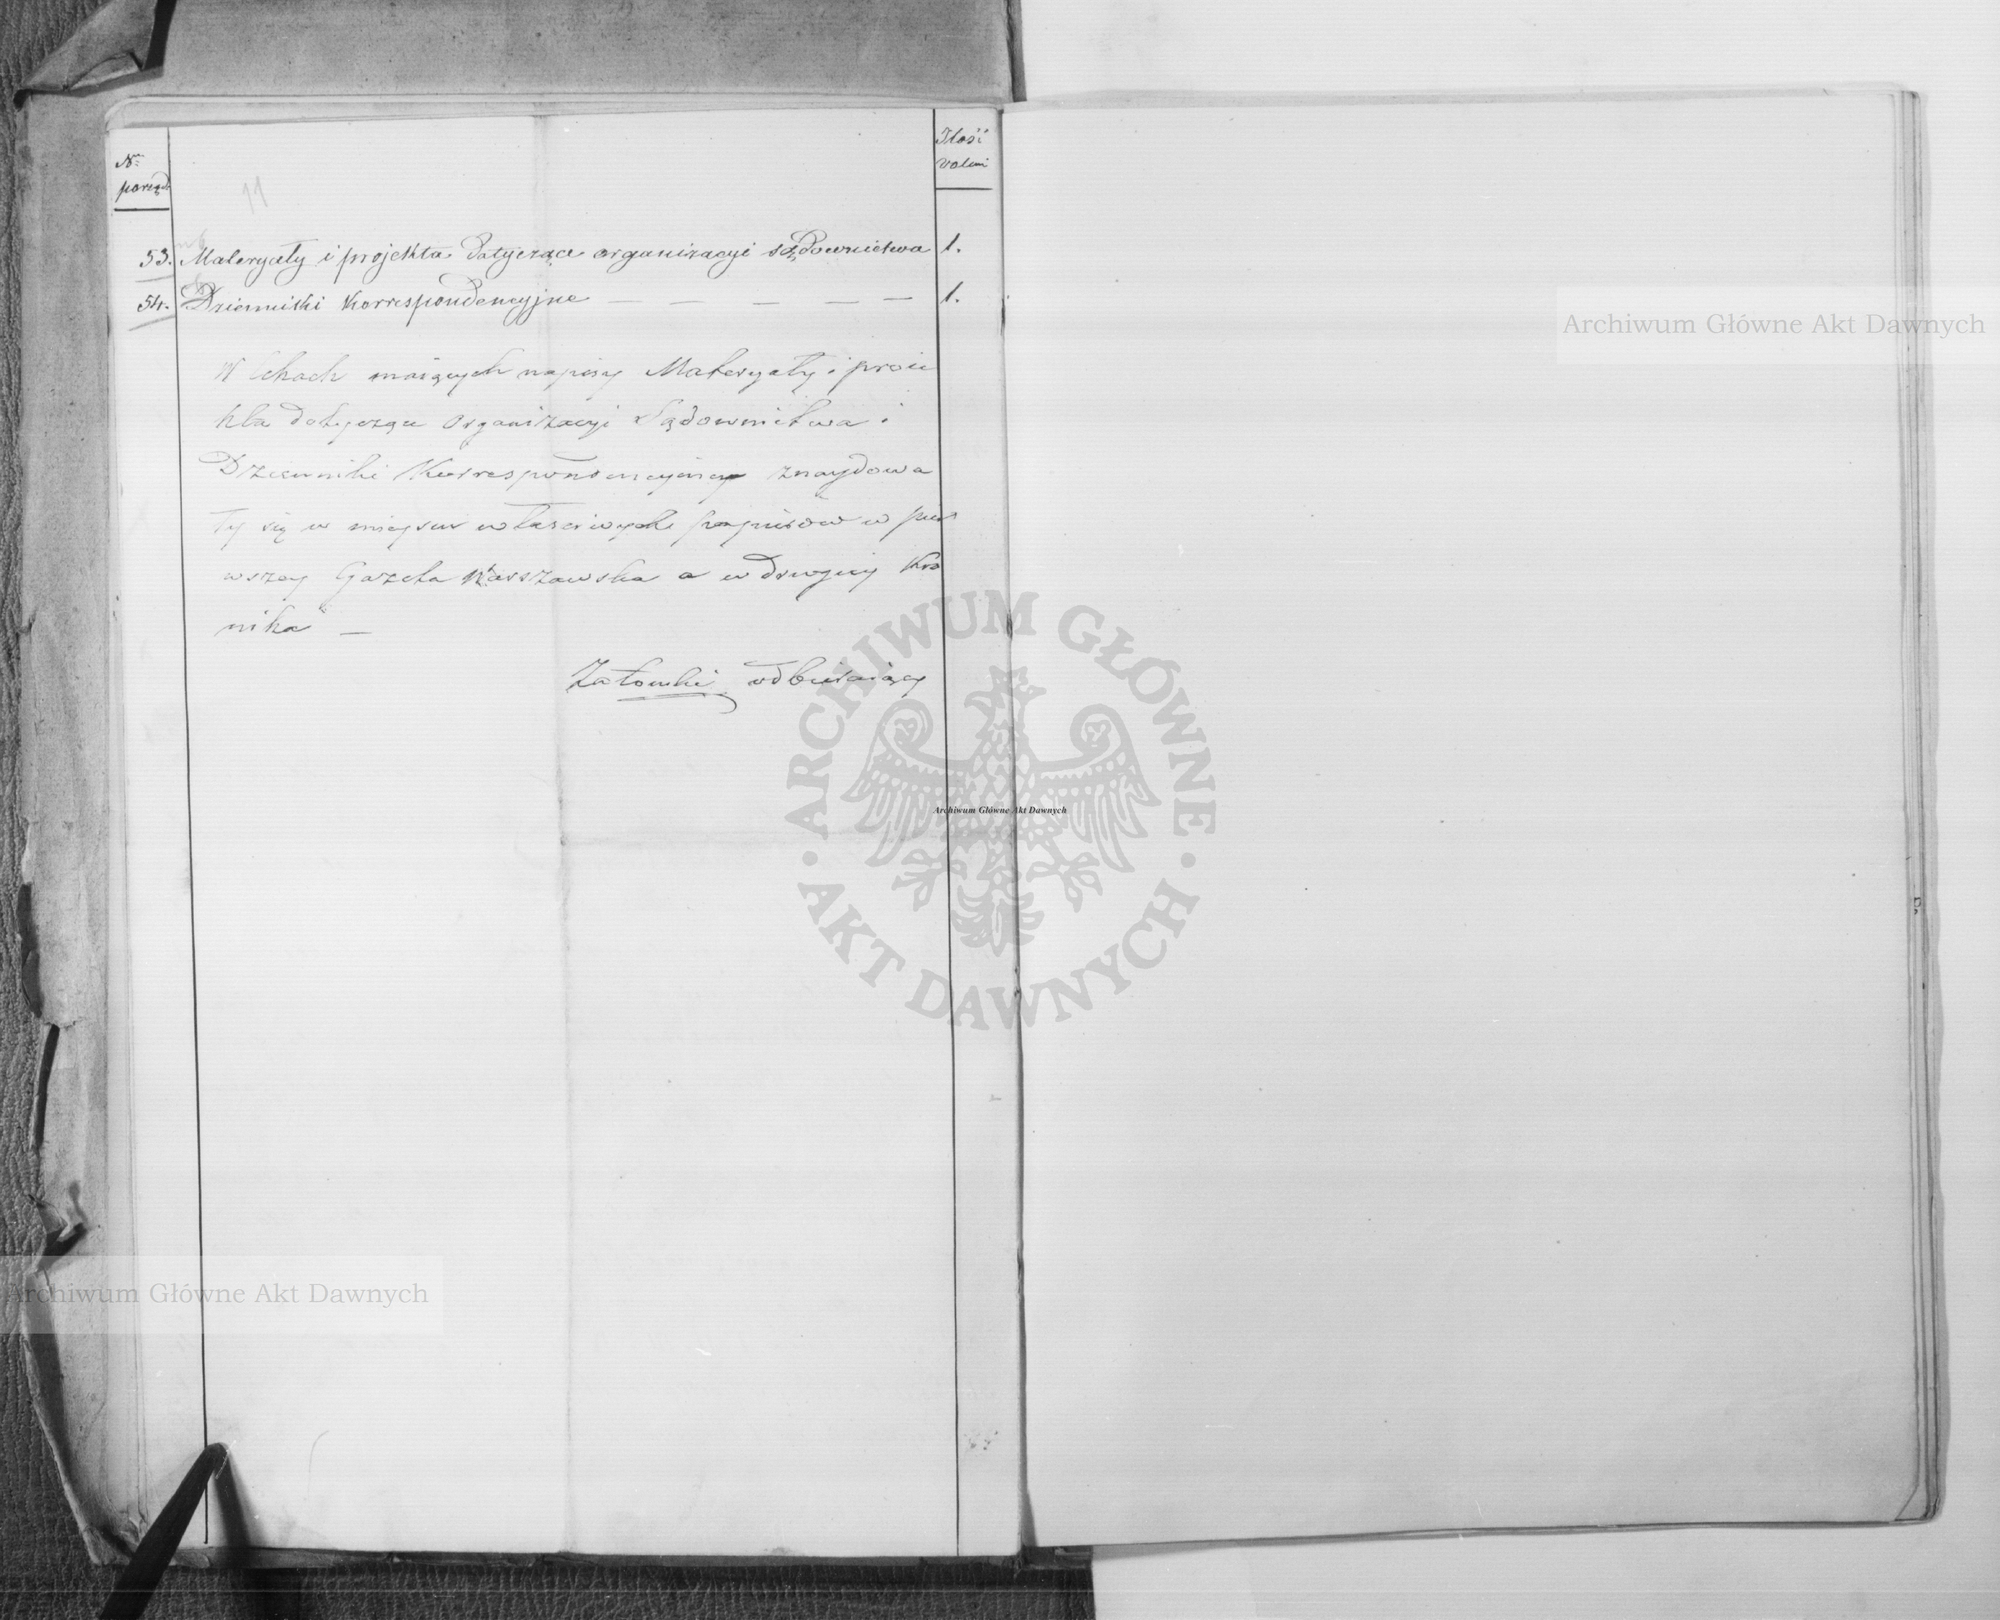 Nr
porząd.
11
Ilość
Volum
53. Materyały i projekta dotyczące organizacyi sądownictwa 1.
54. Dzienniki Korrespondencyjne — — — — — 1.
W mających napisy Materyały i proie
kta dotyczące Organizacyi Sądownictwa i
Dzienniki Korrespondencyiney znaydowa
ły się w mieysce właściwych papierów w pier
wszey Gazeta Warszawska a w drugiey Kro
nika —
Załouski odbieraiący
Archiwum Główne Akt Dawnych
ARCHIWUM GŁÓWNE
Archiwum Główne Akt Dawnych
· AKT DAWNYCH ·
Archiwum Główne Akt Dawnych